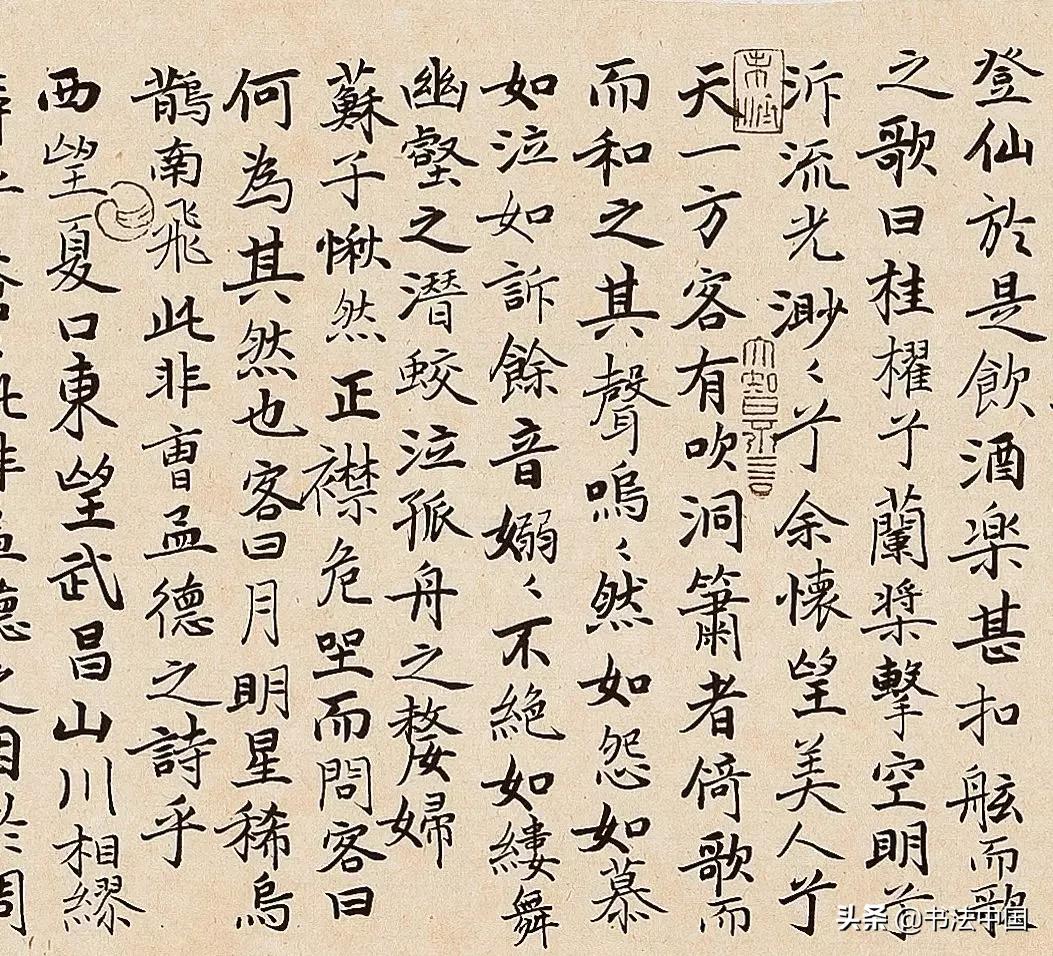 登仙於是飲酒楽甚扣舷而歌
之歌曰桂櫂兮蘭槳擊空明兮
泝流光渺〻兮余懷望美人兮
天一方客有吹洞簫者倚歌而
而和之其聲嗚〻然如怨如慕
如泣如訴餘音嫋〻不絕如縷舞
幽壑之潛蛟泣孤舟之嫠婦
蘇子愀然正襟危坐而問客曰
何為其然也客曰月明星稀烏
鵲南飛此非曹孟德之詩乎
西望夏口東望武昌山川相繆
头条 @书法中国